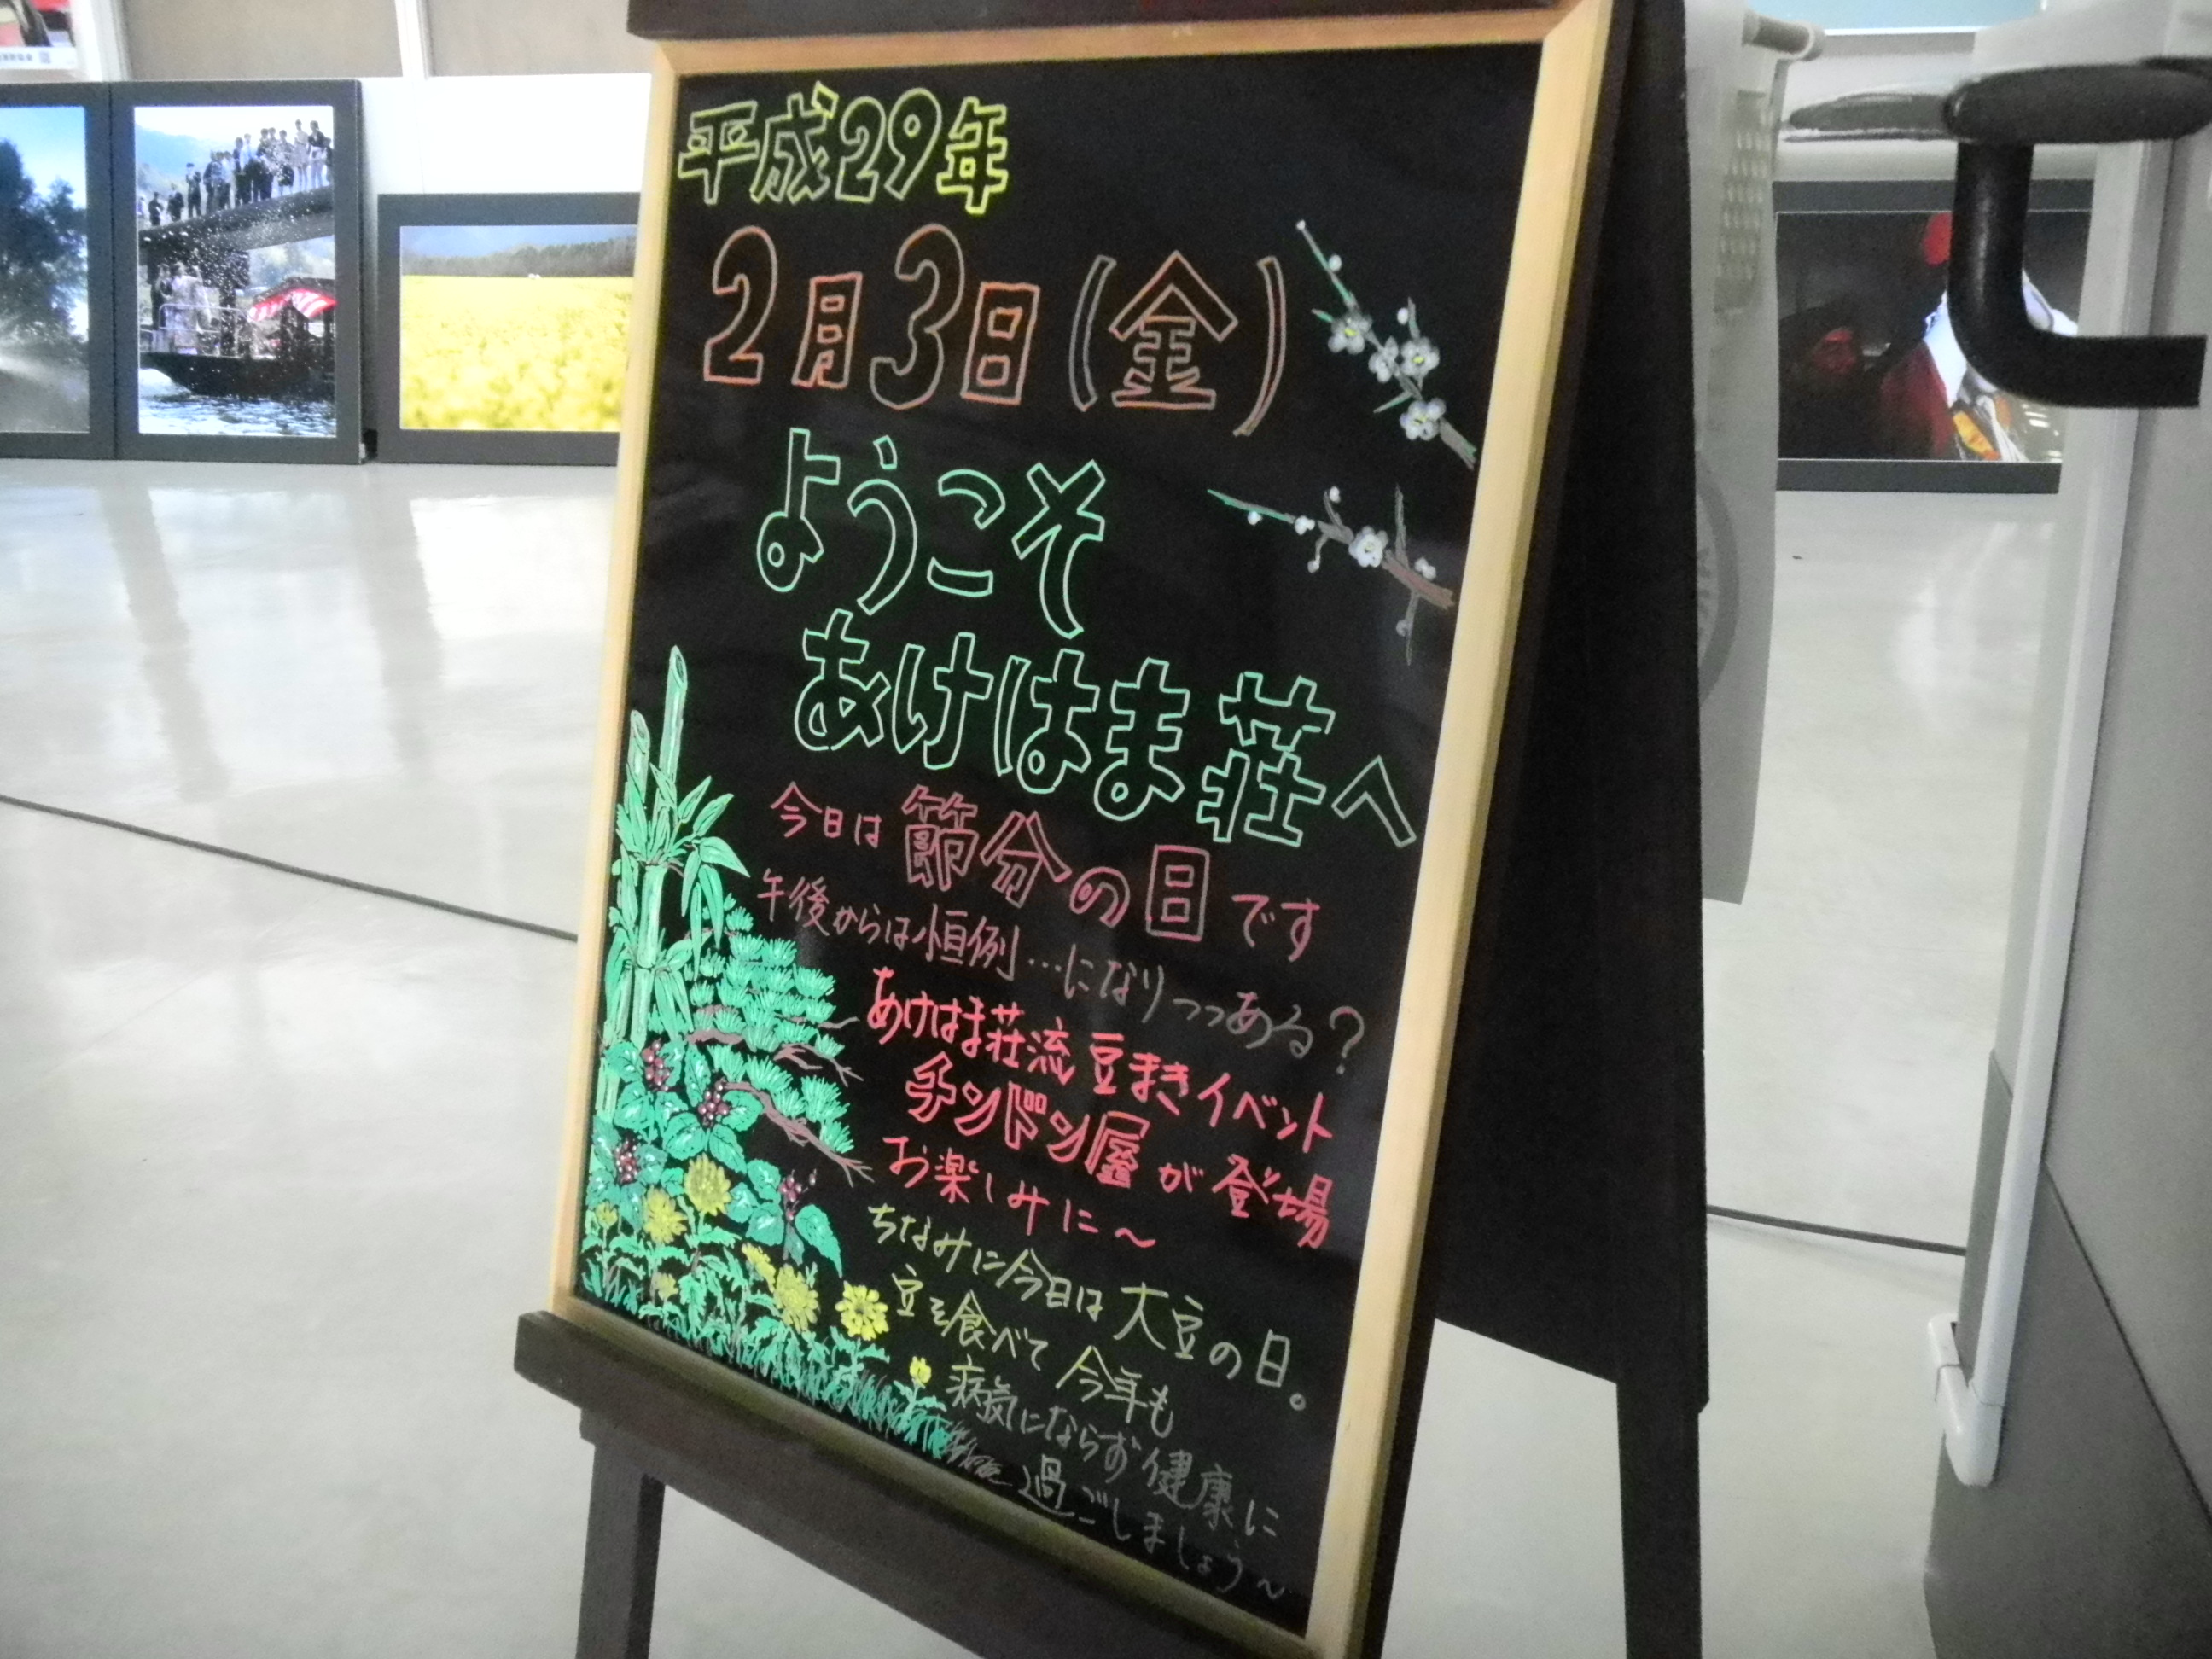 平成29年
2月3日(金)
ようこそ
あけはま荘へ
今日は節分の日です
午後からは恒例…になりつつある?
あけはま荘流豆まきイベント
チンドン屋が登場
お楽しみに～
ちなみに今日は大豆の日。
豆を食べて今年も
病気にならず健康に
過ごしましょう～